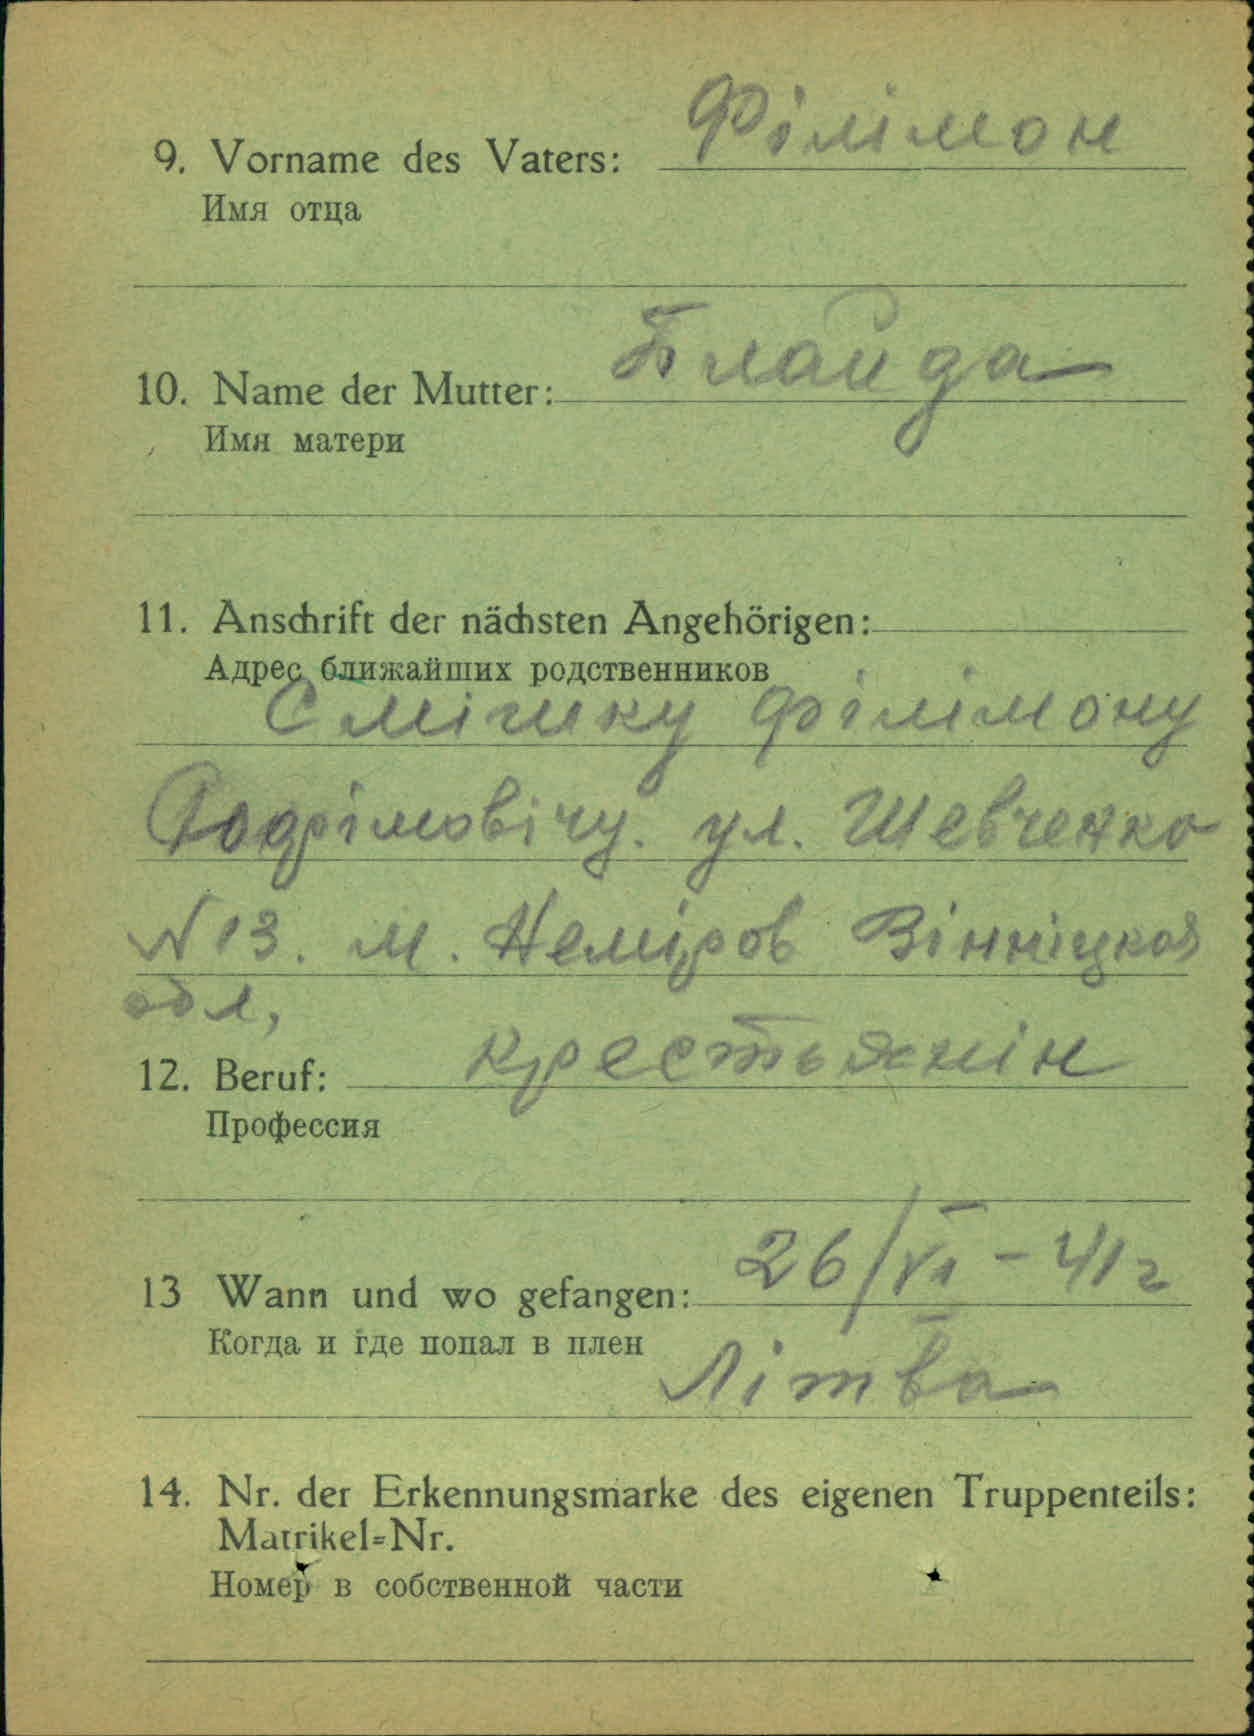 Філімон
9. Vorname des Vaters:
Имя отца
Блайда
10. Name der Mutter:
Имя матери
11. Anschrift der nächsten Angehörigen:
Адрес ближайших родственников
Філімону
ул. Шевченко
N 13. м. Неміров Вінніцкой
обл,
крестьянін
12. Beruf:
Профессия
26/VI - 41 г
13 Wann und wo gefangen:
Когда и где попал в плен
Літва
14. Nr. der Erkennungsmarke des eigenen Truppenteils:
Matrikel=Nr.
Номер в собственной части